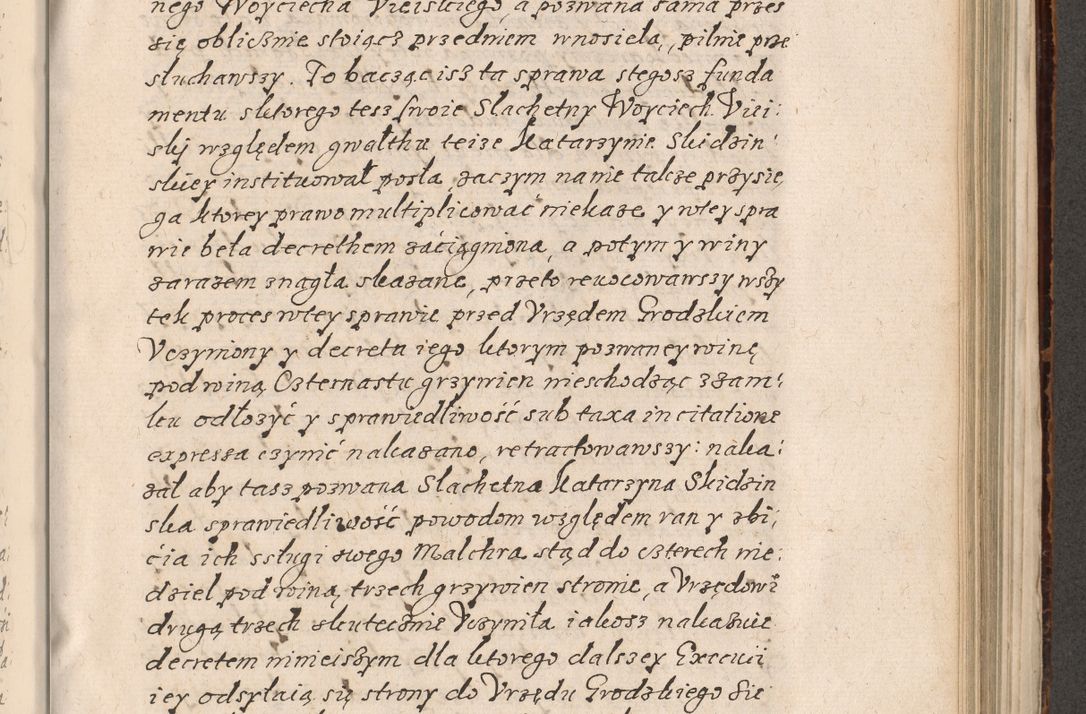 nego Woyciecha Vieiskiego, a pozwana sama przes
się oblicznie stoiącz przedniem wnosieła, pilnie prze
słuchawszy. To bacząc isz ta sprawa stegosz funda
mentu sktorego tesz swoie Slachetny Woyciech Viei:
skj względem gwałthu teize Katarzynie Skidzin:
skiey instituował posła, zaczym na nie takze przysię
ga ktorey prawo multiplicować niekaze y wtey spra
wie beła decrethem záciągniona, a potym y winy
zarazem znagła skazane, przeto reuocowawszy wszy
tek proces wtey sprawie przed Vrzędem Grodzkiem
Vczyniony y decreta iego ktorym pozwaney winę
pod winą Czternastu grzywien nieschodząc z zam:
ku odłozyć y sprawiedliwość sub taxa in citatione
expressa czynić nakazano, retractowawszy: naka:
zał aby tasz pozwana Slachetna Katarzyna Skidzin
ska sprawiedliwość powodom względem ran y zbi:
ćia ich ssługi swego Malchra stąd do czterech nie:
dziel pod winą trzech grzywien stronie, a Vrzędowi
drugą trzech skutecznie Vczyniła iakosz nakazuie
decretem ninieiszym dla ktorego dalszey Execuij
iey odsyłaią się strony do Vrzędu Grodzkiego Sie